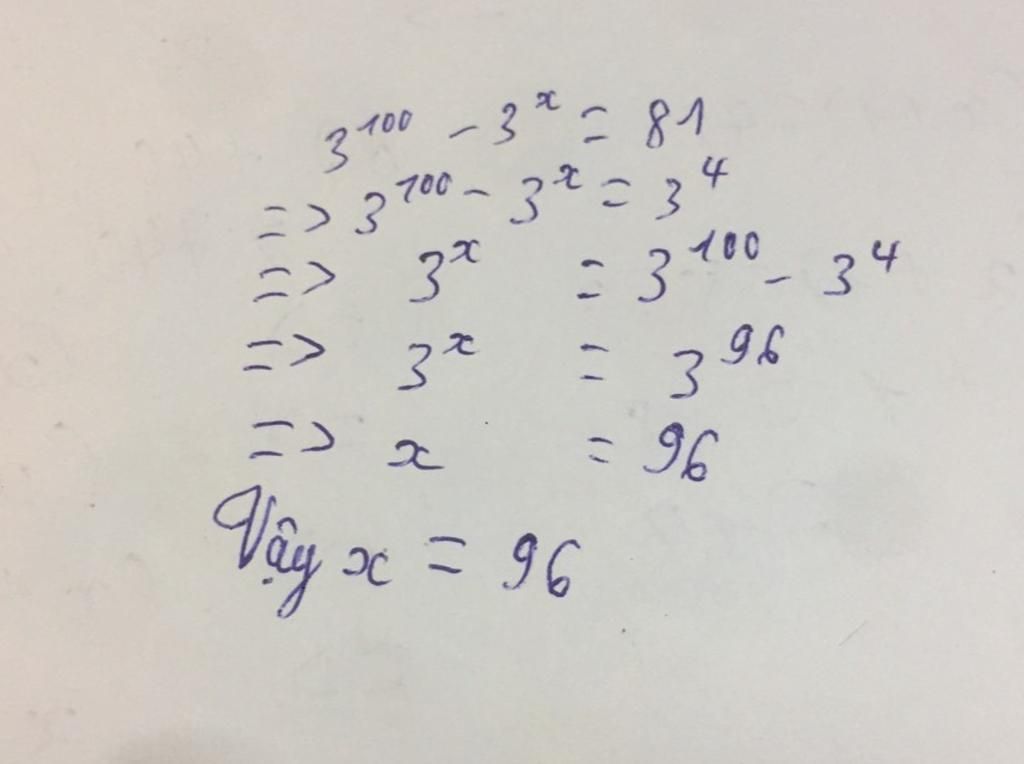 3^100 - 3^x = 81
=> 3^100 - 3^x = 3^4
=> 3^x = 3^100 - 3^4
=> 3^x = 3^96
=> x = 96
Vậy x = 96